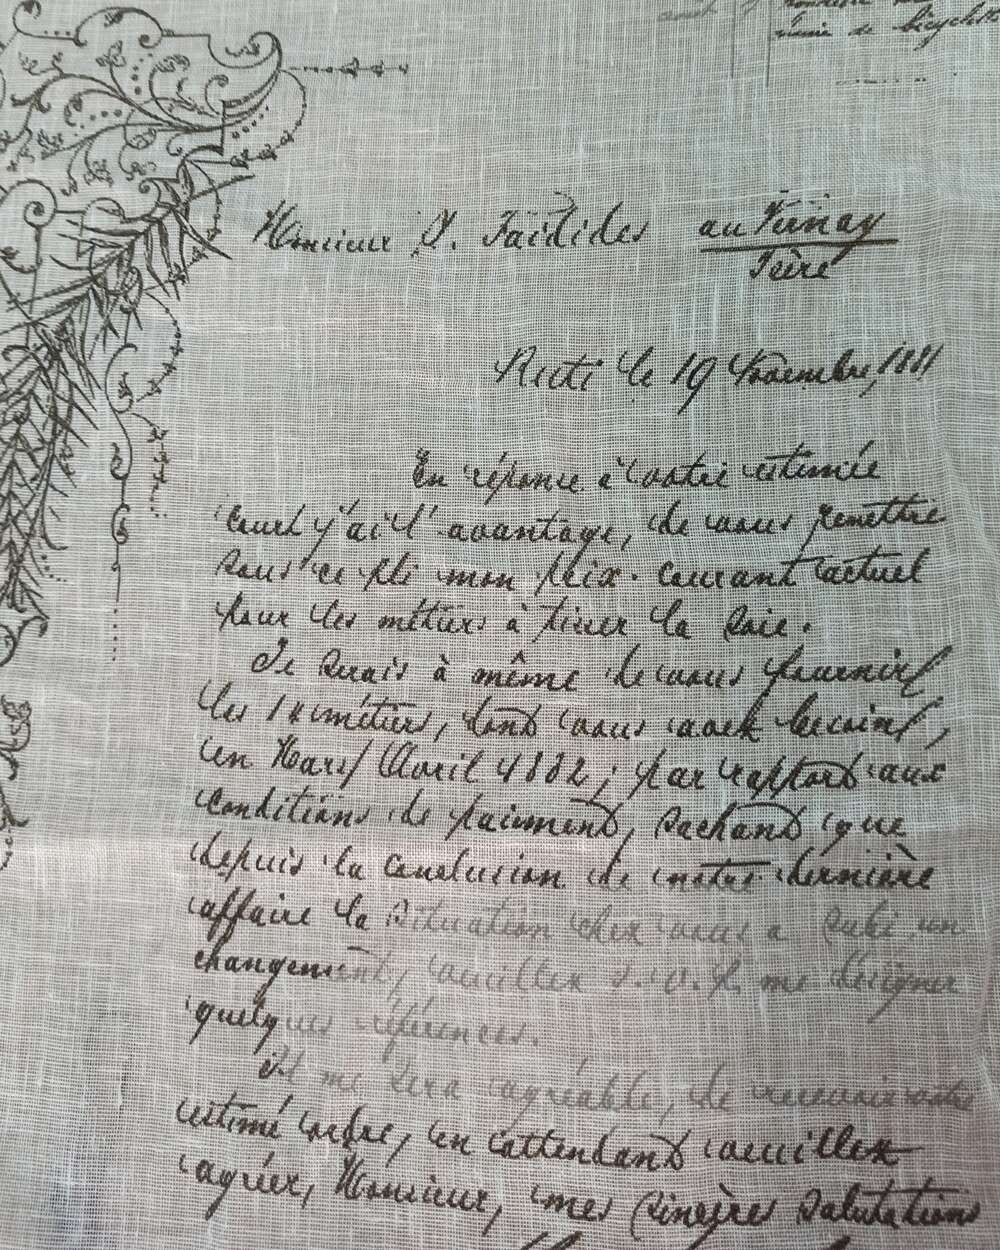 de bicyclette
Monsieur
Isère
le 19 Novembre, 1881
En réponse à votre estimée
j'ai l'avantage, de vous remettre
sous ce pli mon prix-courant actuel
pour les métiers à tisser la soie.
Je serais à même de vous fournir
les métiers, dont vous avez besoin,
en Mars/Avril 1882; par rapport aux
conditions de paiement, sachant que
depuis la conclusion de notre dernière
affaire la situation chez vous a subi un
changement, veuillez s.v.p. me désigner
quelques références.
Il me sera agréable, de recevoir votre
estimé ordre, en attendant veuillez
agréer, Monsieur, mes sincères salutations